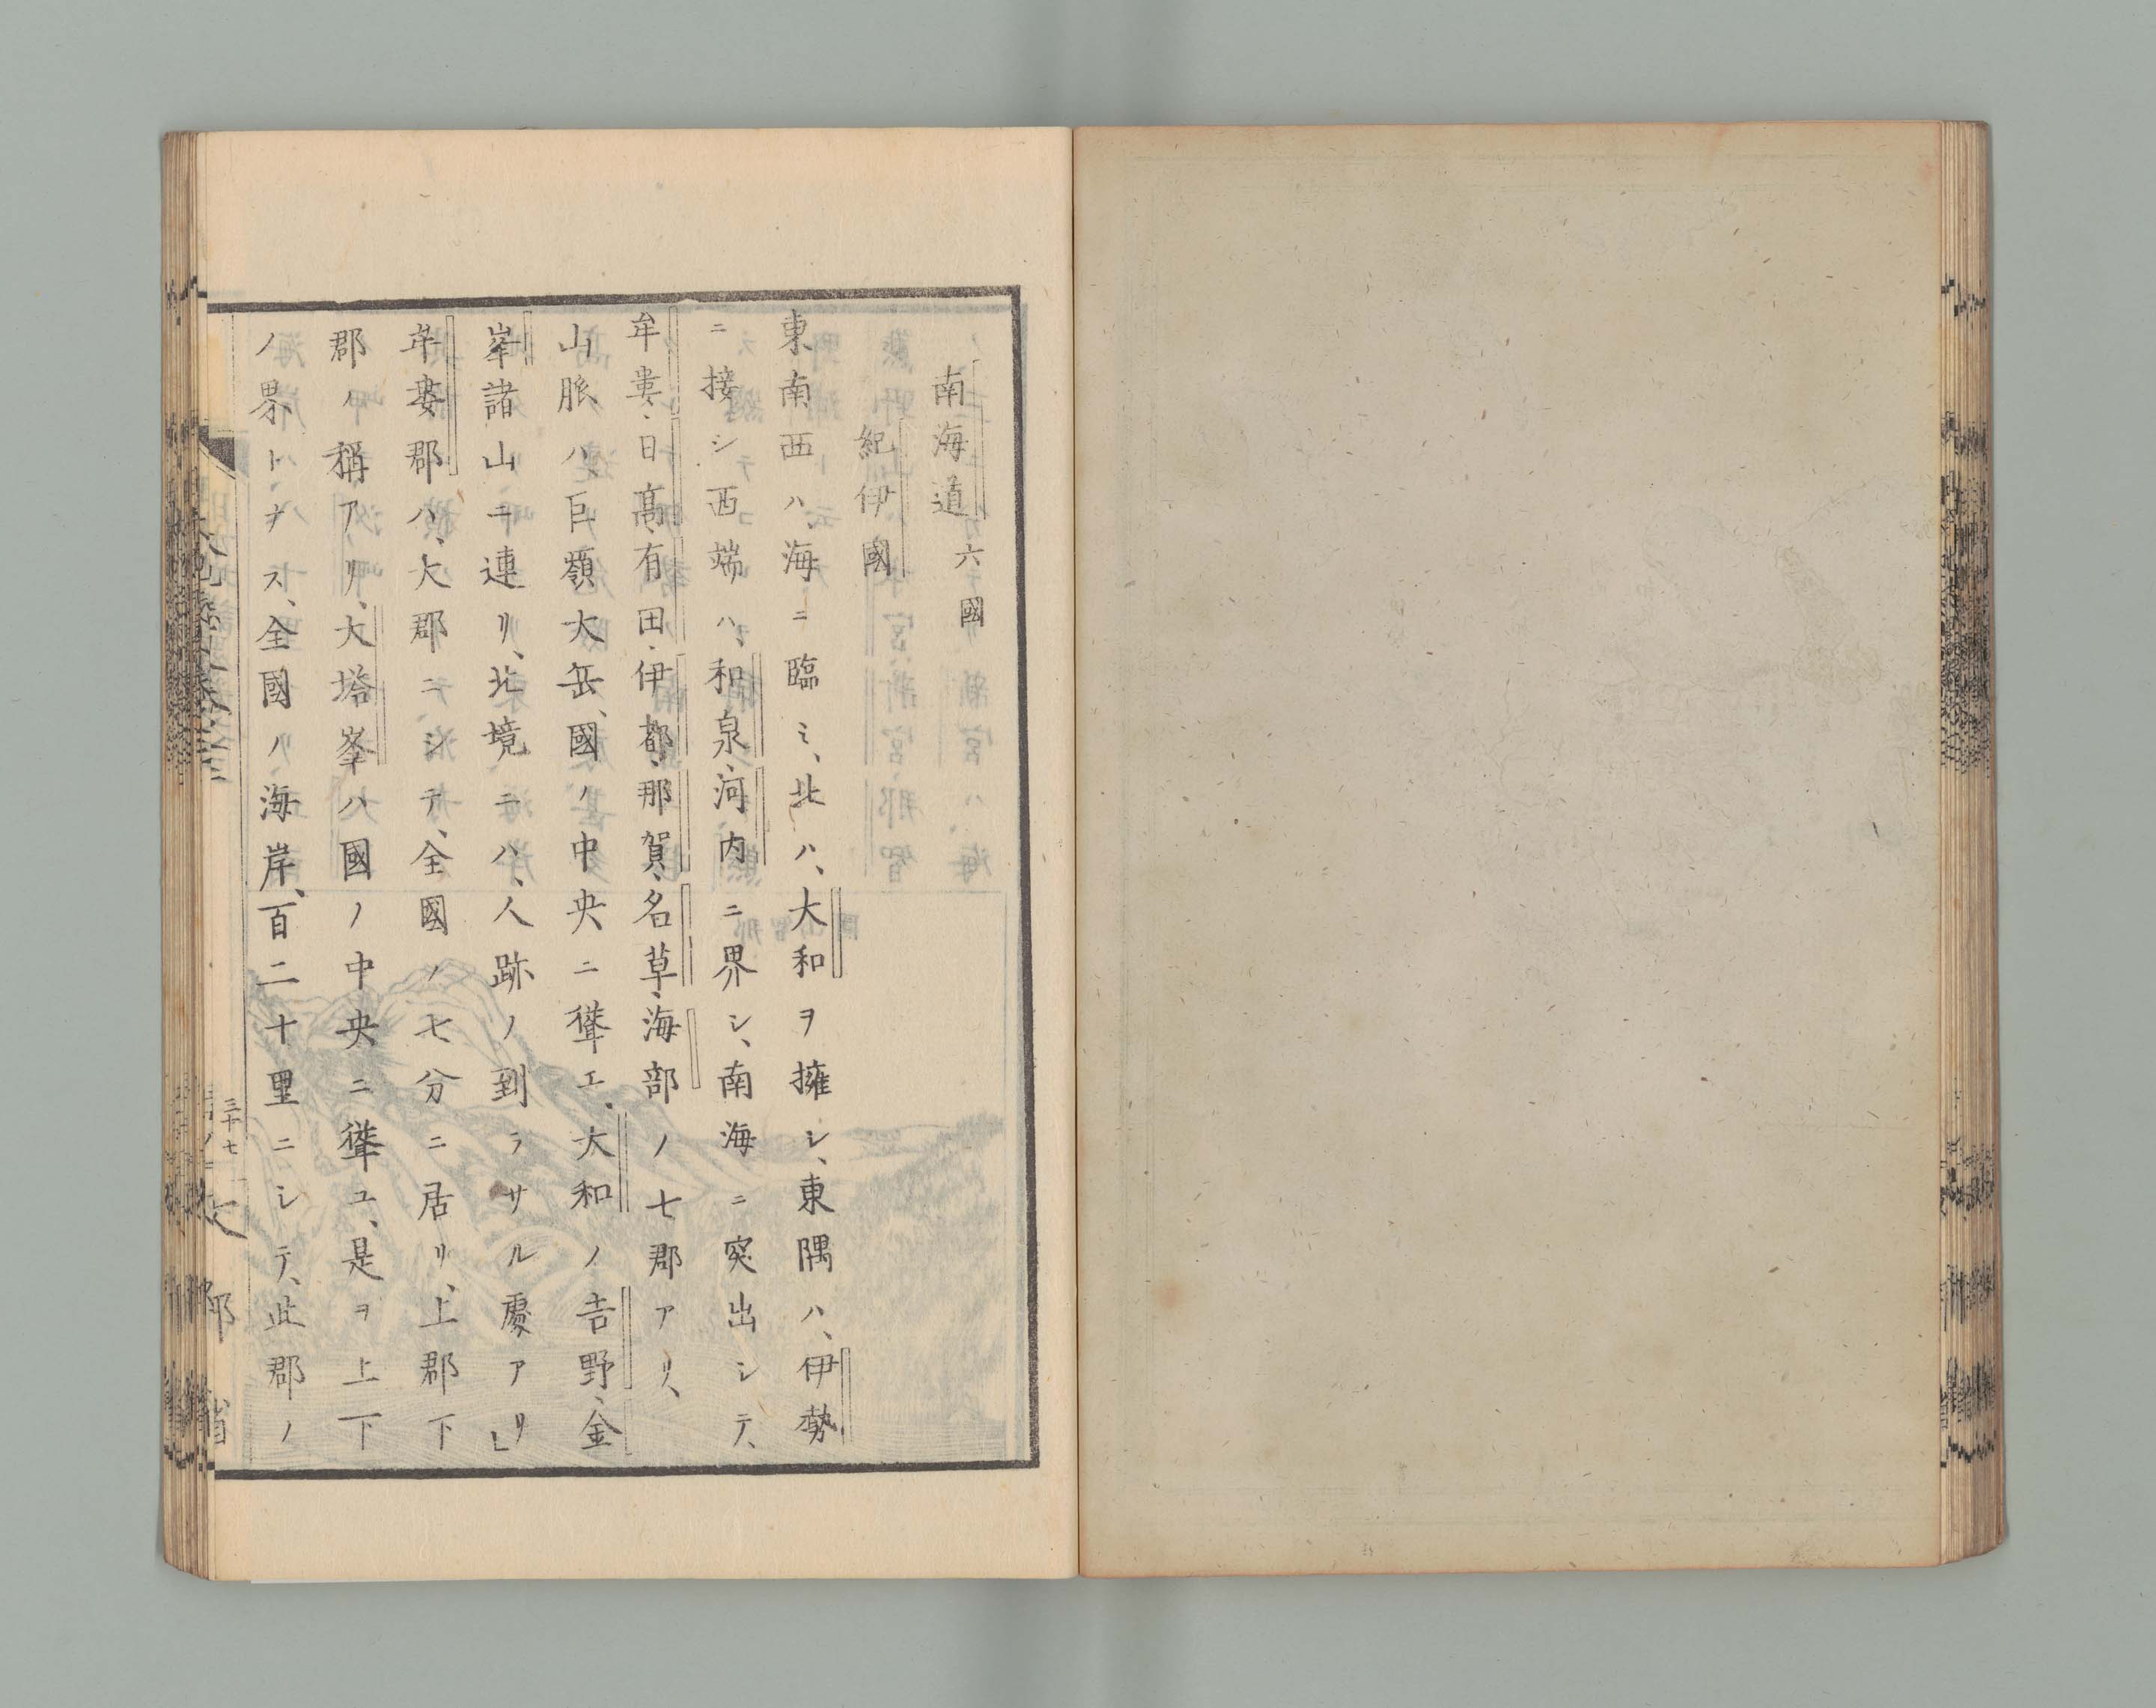 南海道六國
紀伊國
東南西ハ、海ニ臨ミ、北ハ、大和ヲ擁シ、東隅ハ、伊勢
ニ接シ西端ハ、和泉、河内ニ界シ、南海ニ突出シテ、
牟婁、日髙、有田、伊都、那賀、名草、海部ノ七郡アリ、
山脈ハ、巨嶺大岳、國ノ中央ニ聳エ、大和ノ吉野、金
峯諸山ニ連リ、北境ニハ、人跡ノ到ラサル處アリ」
牟婁郡ハ、大郡ニシテ、全國ノ七分ニ居リ、上郡下
郡ノ稱アリ、大塔峯ハ國ノ中央ニ聳ユ、是ヲ上下
ノ界トナス、全國ノ海岸、百二十里ニシテ、此郡ノ
三十七